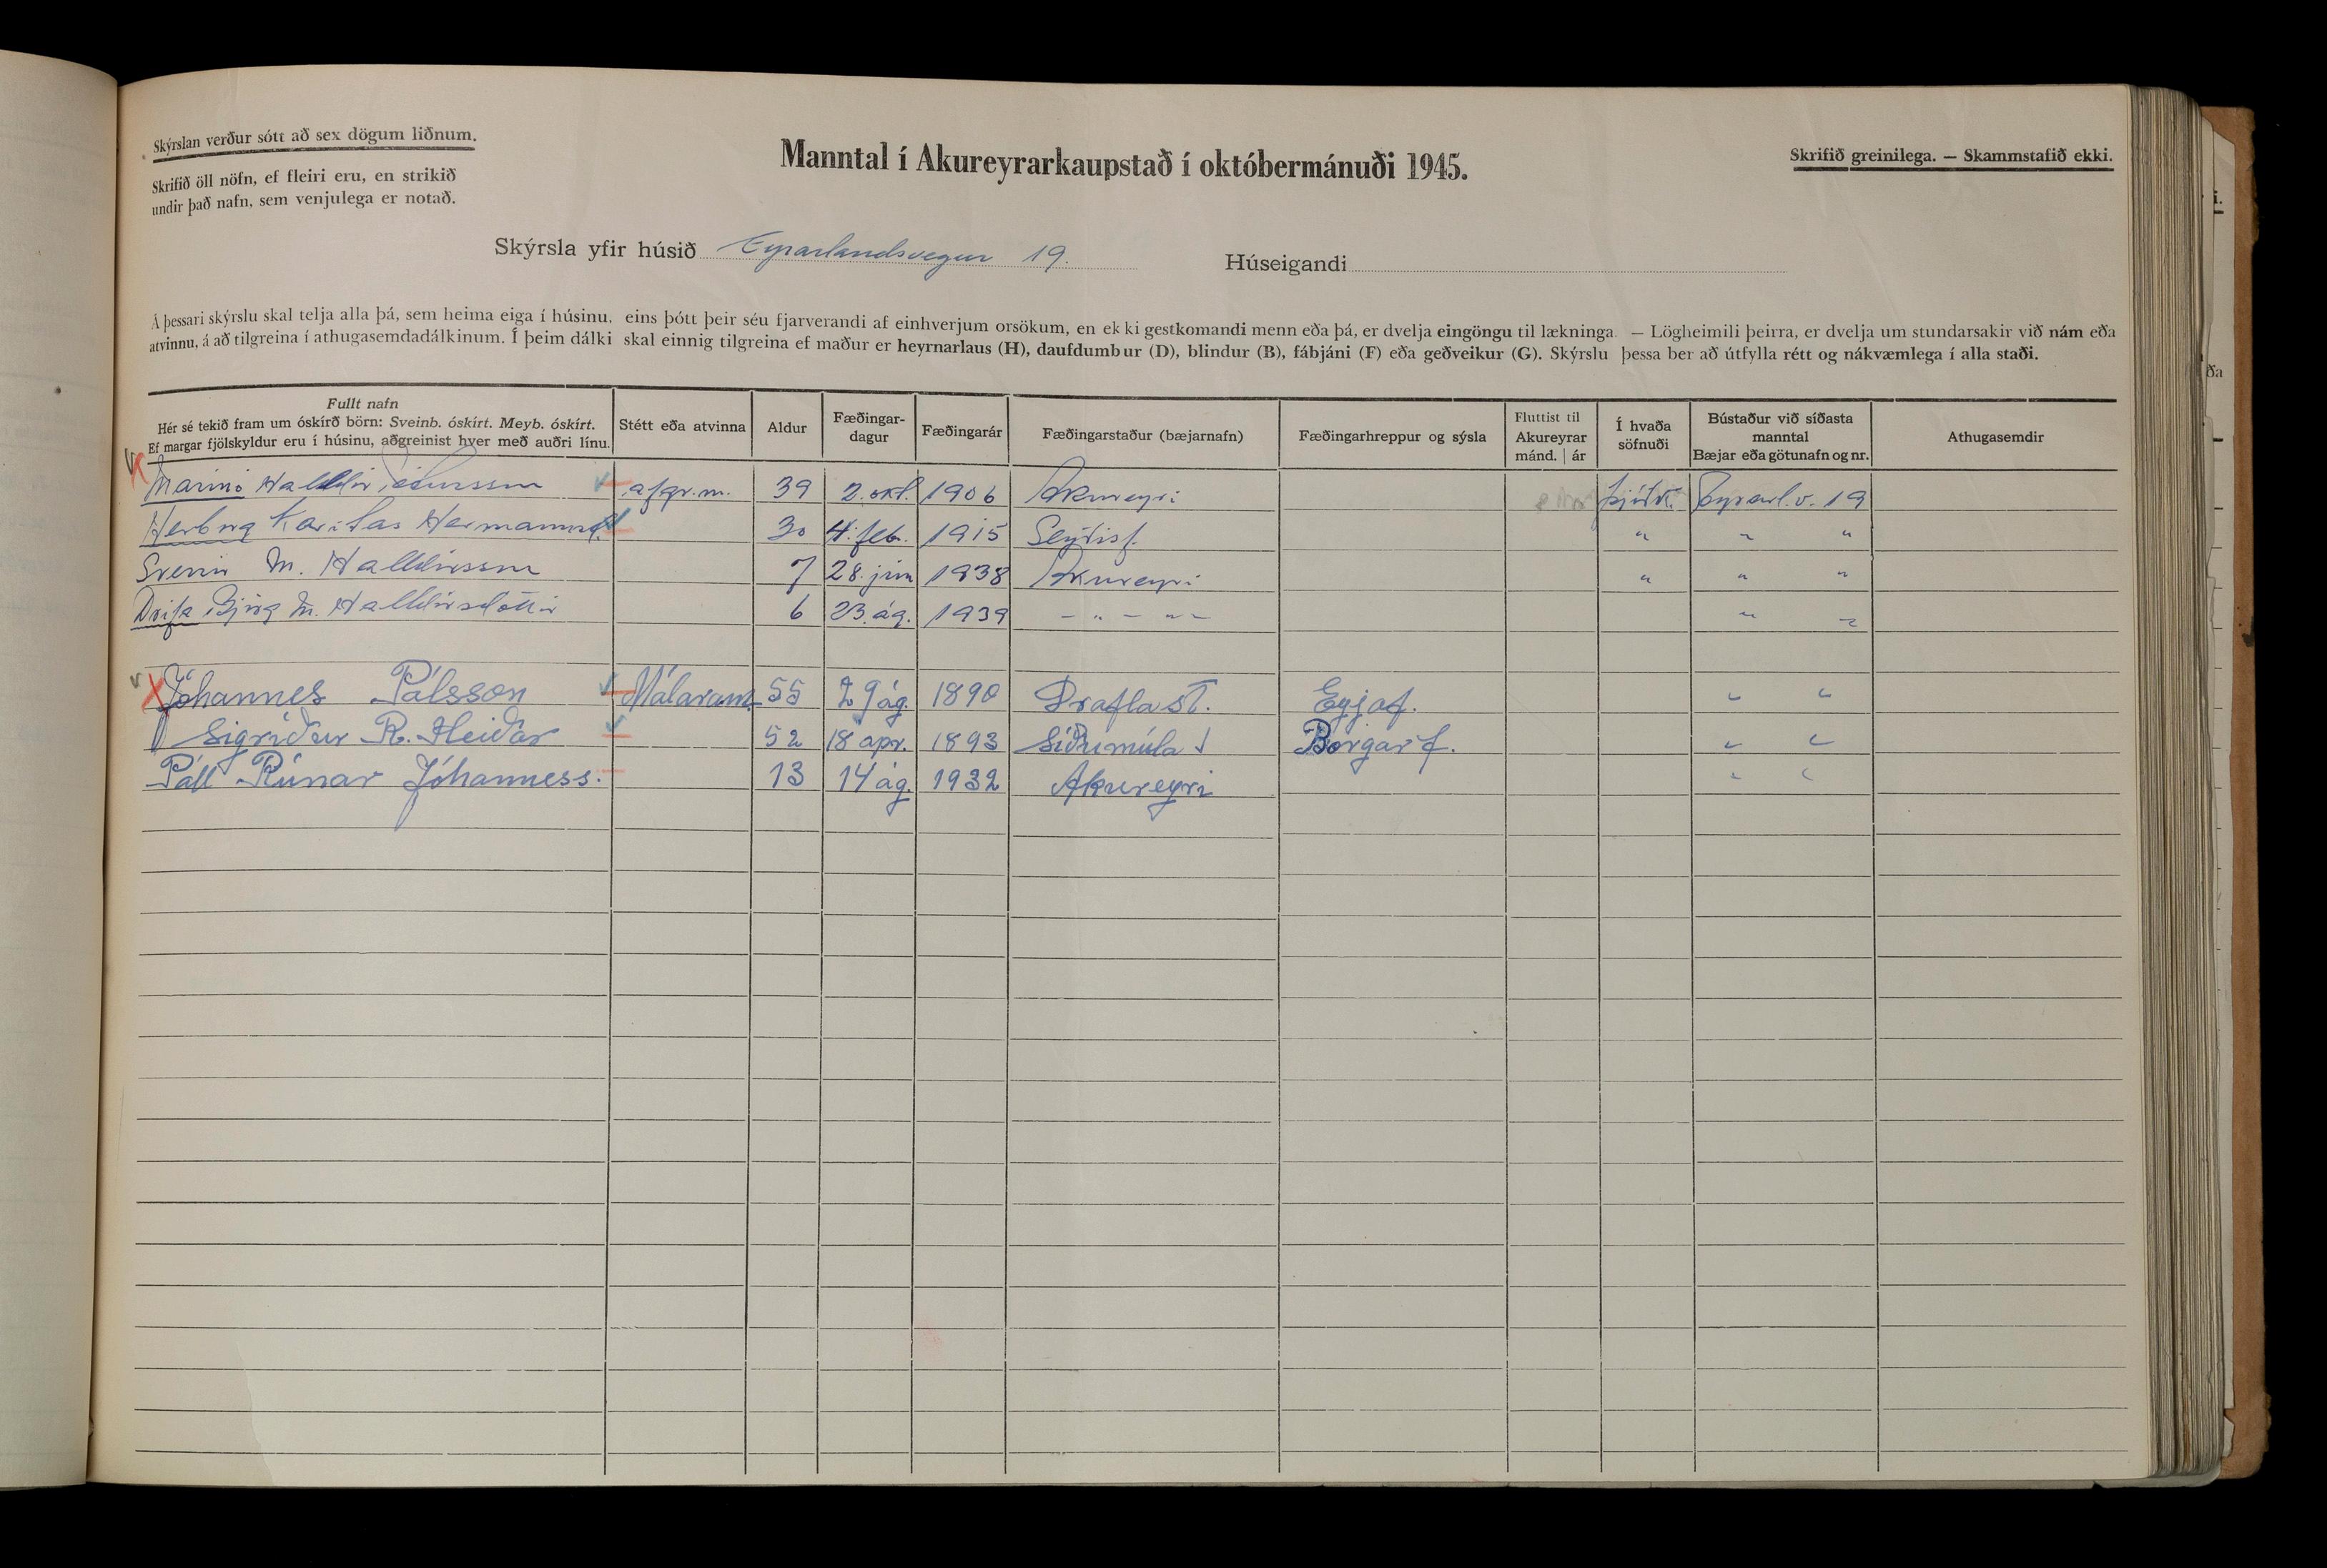 Skýrslan verður sótt að sex dögum liðnum.
Skrifið öll nöfn, ef fleiri eru, en strikið
undir það nafn, sem venjulega er notað.
Manntal í Akureyrarkaupstað í októbermánuði 1945.
Skrifið greinilega. — Skammstafið ekki.
Skýrsla yfir húsið Eyrarlandsvegur 19. Húseigandi
Á þessari skýrslu skal telja alla þá, sem heima eiga í húsinu, eins þótt þeir séu fjarverandi af einhverjum orsökum, en ekki gestkomandi menn eða þá, er dvelja eingöngu til lækninga. — Lögheimili þeirra, er dvelja um stundarsakir við nám eða
atvinnu, á að tilgreina í athugasemdadálkinum. Í þeim dálki skal einnig tilgreina ef maður er heyrnarlaus (H), daufdumbur (D), blindur (B), fábjáni (F) eða geðveikur (G). Skýrslu þessa ber að útfylla rétt og nákvæmlega í alla staði.
Fullt nafn
Hér sé tekið fram um óskírð börn: Sveinb. óskírt. Meyb. óskírt.
Ef margar fjölskyldur eru í húsinu, aðgreinist hver með auðri línu.
Stétt eða atvinna
Aldur
Fæðingar-
dagur
Fæðingarár
Fæðingarstaður (bæjarnafn)
Fæðingarhreppur og sýsla
Fluttist til
Akureyrar
mánd. | ár
Í hvaða
söfnuði
Bústaður við síðasta
manntal
Bæjar eða götunafn og nr.
Athugasemdir
Marinó Halldór afgr.m. 39 2. okt. 1906 Akureyri þjóðk. Eyrarl.v. 19
Herborg Karitas Hermannsd. 30 4. feb. 1915 Seyðisf. " " "
Sverrir M. Halldórsson 7 28. jún 1938 Akureyri " " "
Drífa Björg M. Halldórsdóttir 6 23. ág. 1939 – " – " – " "
Jóhannes Pálsson Málaram. 55 29 ág. 1890 Draflast. Eyjaf. " "
Sigríður R. Heiðar 52 18 apr. 1893 Síðumúla Borgarf. " "
Páll Rúnar Jóhanness. 13 14 ág. 1932 Akureyri " "